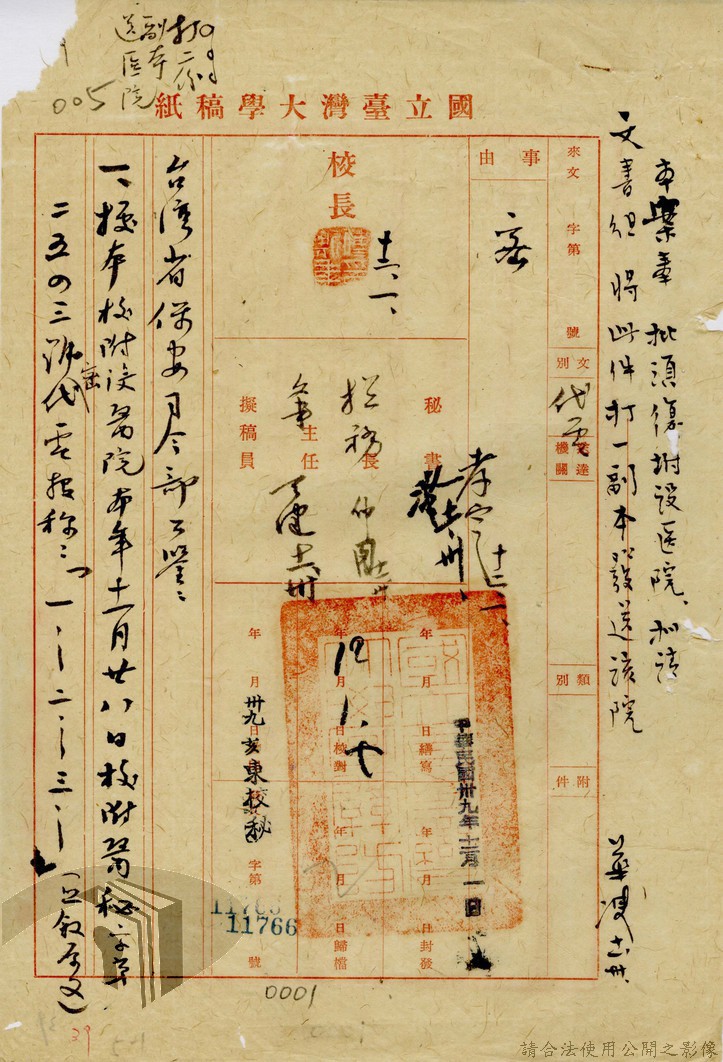 打二份
副本
送醫院
005
國立臺灣大學稿紙
本案奉 批須復附設医院、擬請
文書組將此件打一副本發送該院
來文 字第 號
事由
密
文別
代電
送達機關
類別
附件
校長
十二、一、
秘書
總務長
主任
擬稿員
年 月 日繕寫
年 月 日校對
年 月 日封發
年 月 日歸檔
中華民國卅九年十二月一日
卅九亥東校秘
字第 號
11766
台湾省保安司令部公鑒：
一、據本校附設醫院本年十一月廿八日校附醫秘字第
二五〇三號密代電報称：「一、…二、…三、…」（照敘原文）
0001
29
請合法使用公開之影像